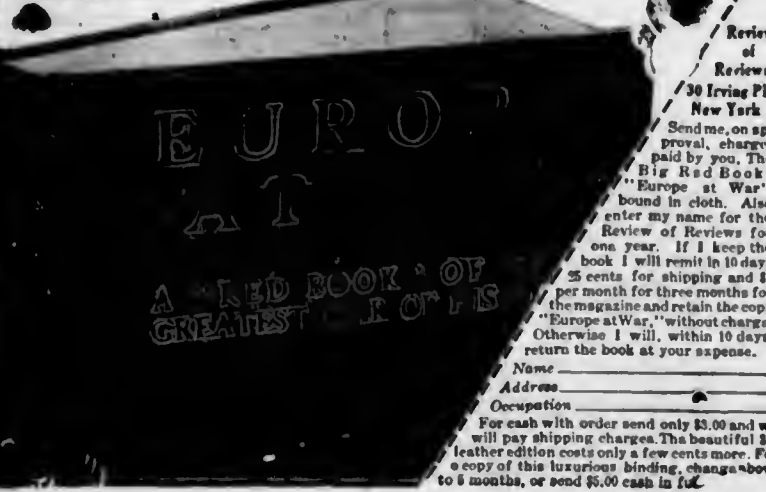 EURO
AT
A RED BOOK OF
GREATEST OF
Review
of
Reviews
30 Irving Pl
New York
Send me, on ap
proval, charge
paid by you, The
Big Red Book
"Europe at War"
bound in cloth. Also
enter my name for the
Review of Reviews fo
one year. If I keep the
book I will remit in 10 day
25 cents for shipping and $
per month for three months fo
the magazine and retain the cop
"Europe at War," without charge
Otherwise I will, within 10 days
return the book at your expense.
Name
Address
Occupation
For cash with order send only $3.00 and w
will pay shipping charges. The beautiful $
leather edition costs only a few cents more. Fo
a copy of this luxurious binding, change abov
to 5 months, or send $5.00 cash in full